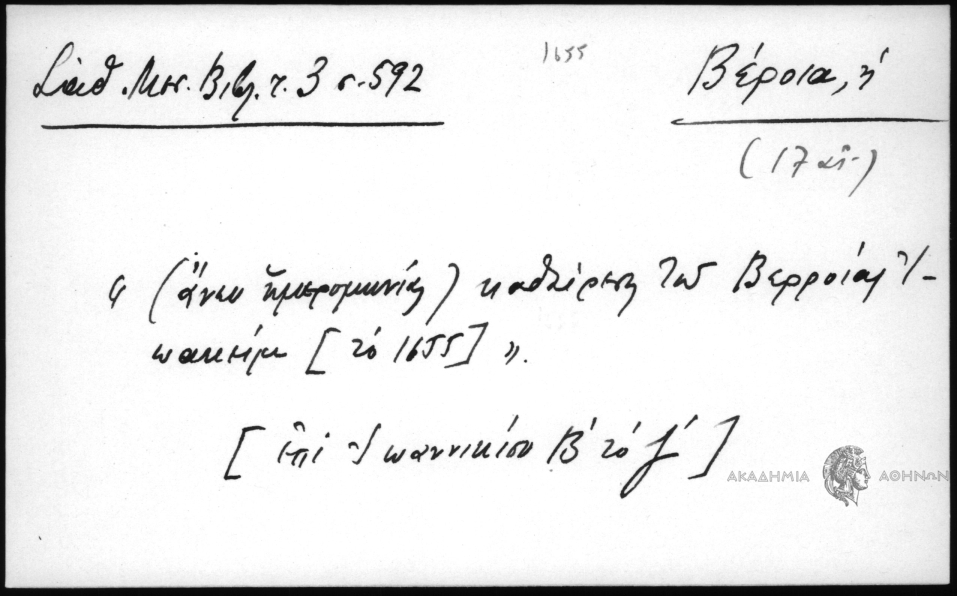 Σάθ. Μεσ. Βιβ. τ. 3 σ. 592
1655
Βέροια, ἡ
(17 αἰ.)
« (ἄνευ ἡμερομηνίας) καθαίρεσις τοῦ Βερροίας Ἰ-
ωακεὶμ [τὸ 1655] ».
[ἐπὶ Ἰωαννικίου Β΄ τὸ γ΄]
ΑΚΑΔΗΜΙΑ ΑΘΗΝΩΝ